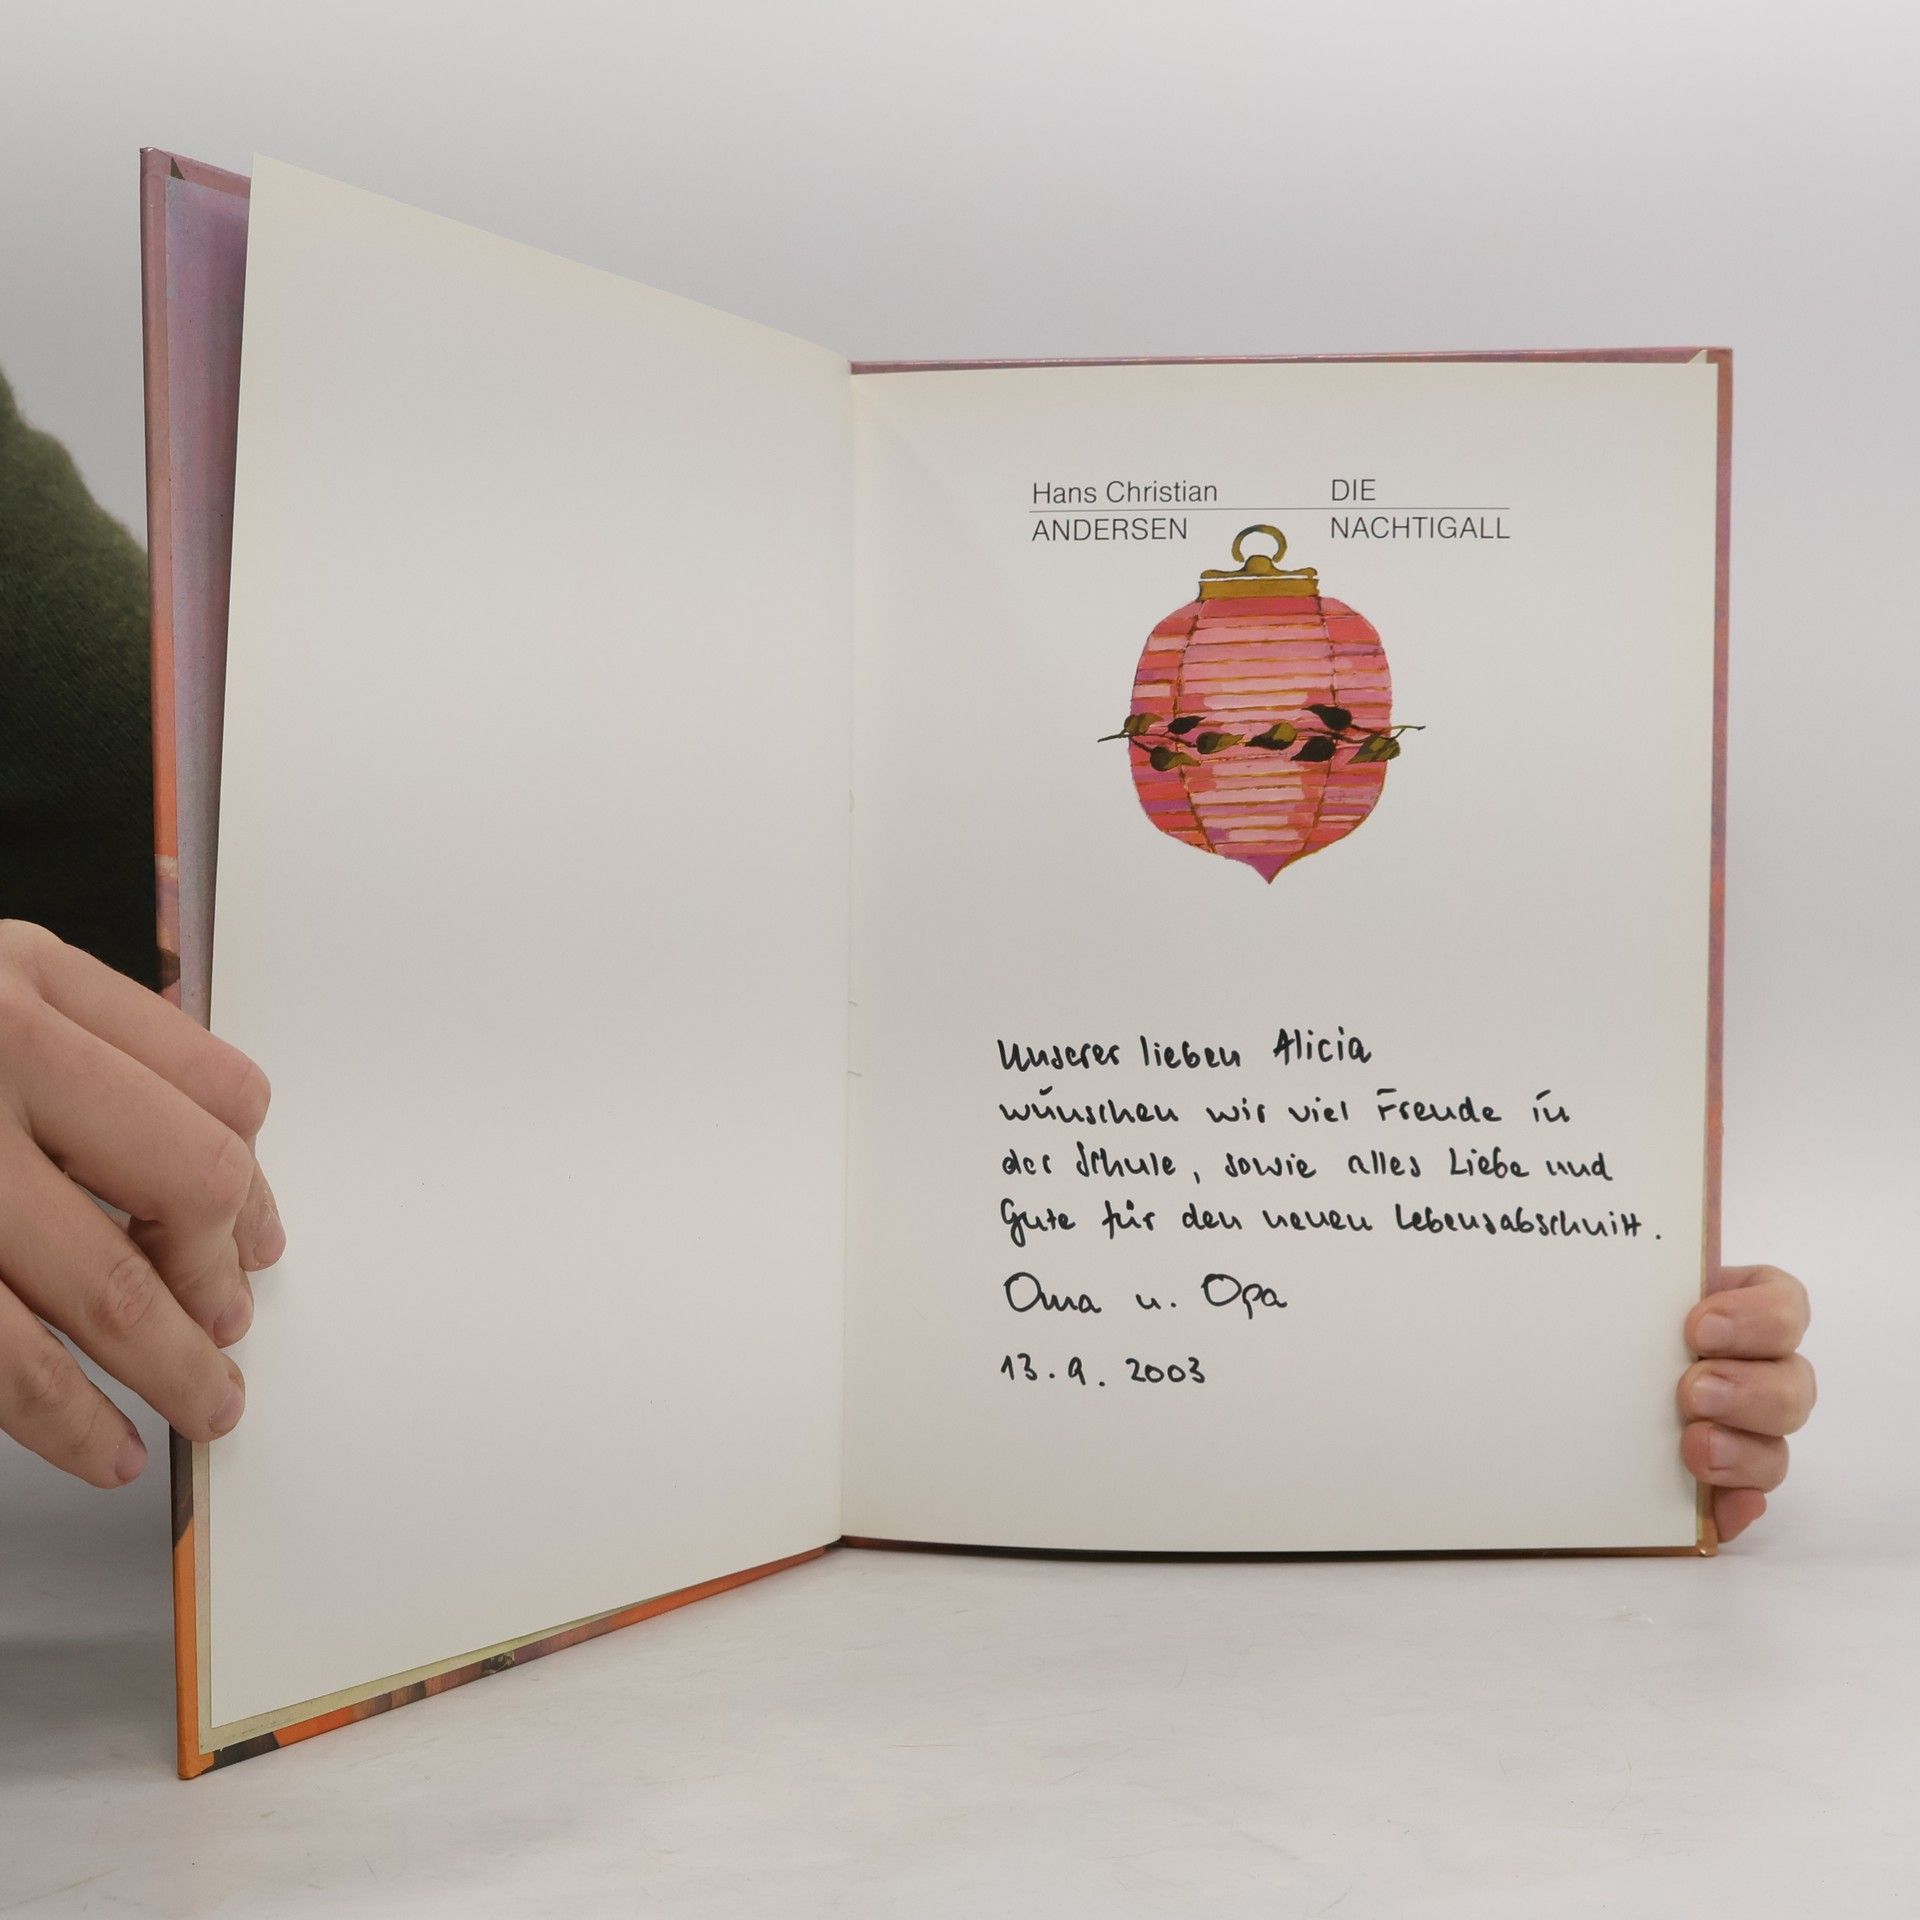 Hans Christian
ANDERSEN
DIE
NACHTIGALL
Unserer lieben Alicia
wünschen wir viel Freude in
der Schule, sowie alles Liebe und
Gute für den neuen Lebensabschnitt.
Oma u. Opa
13.9.2003